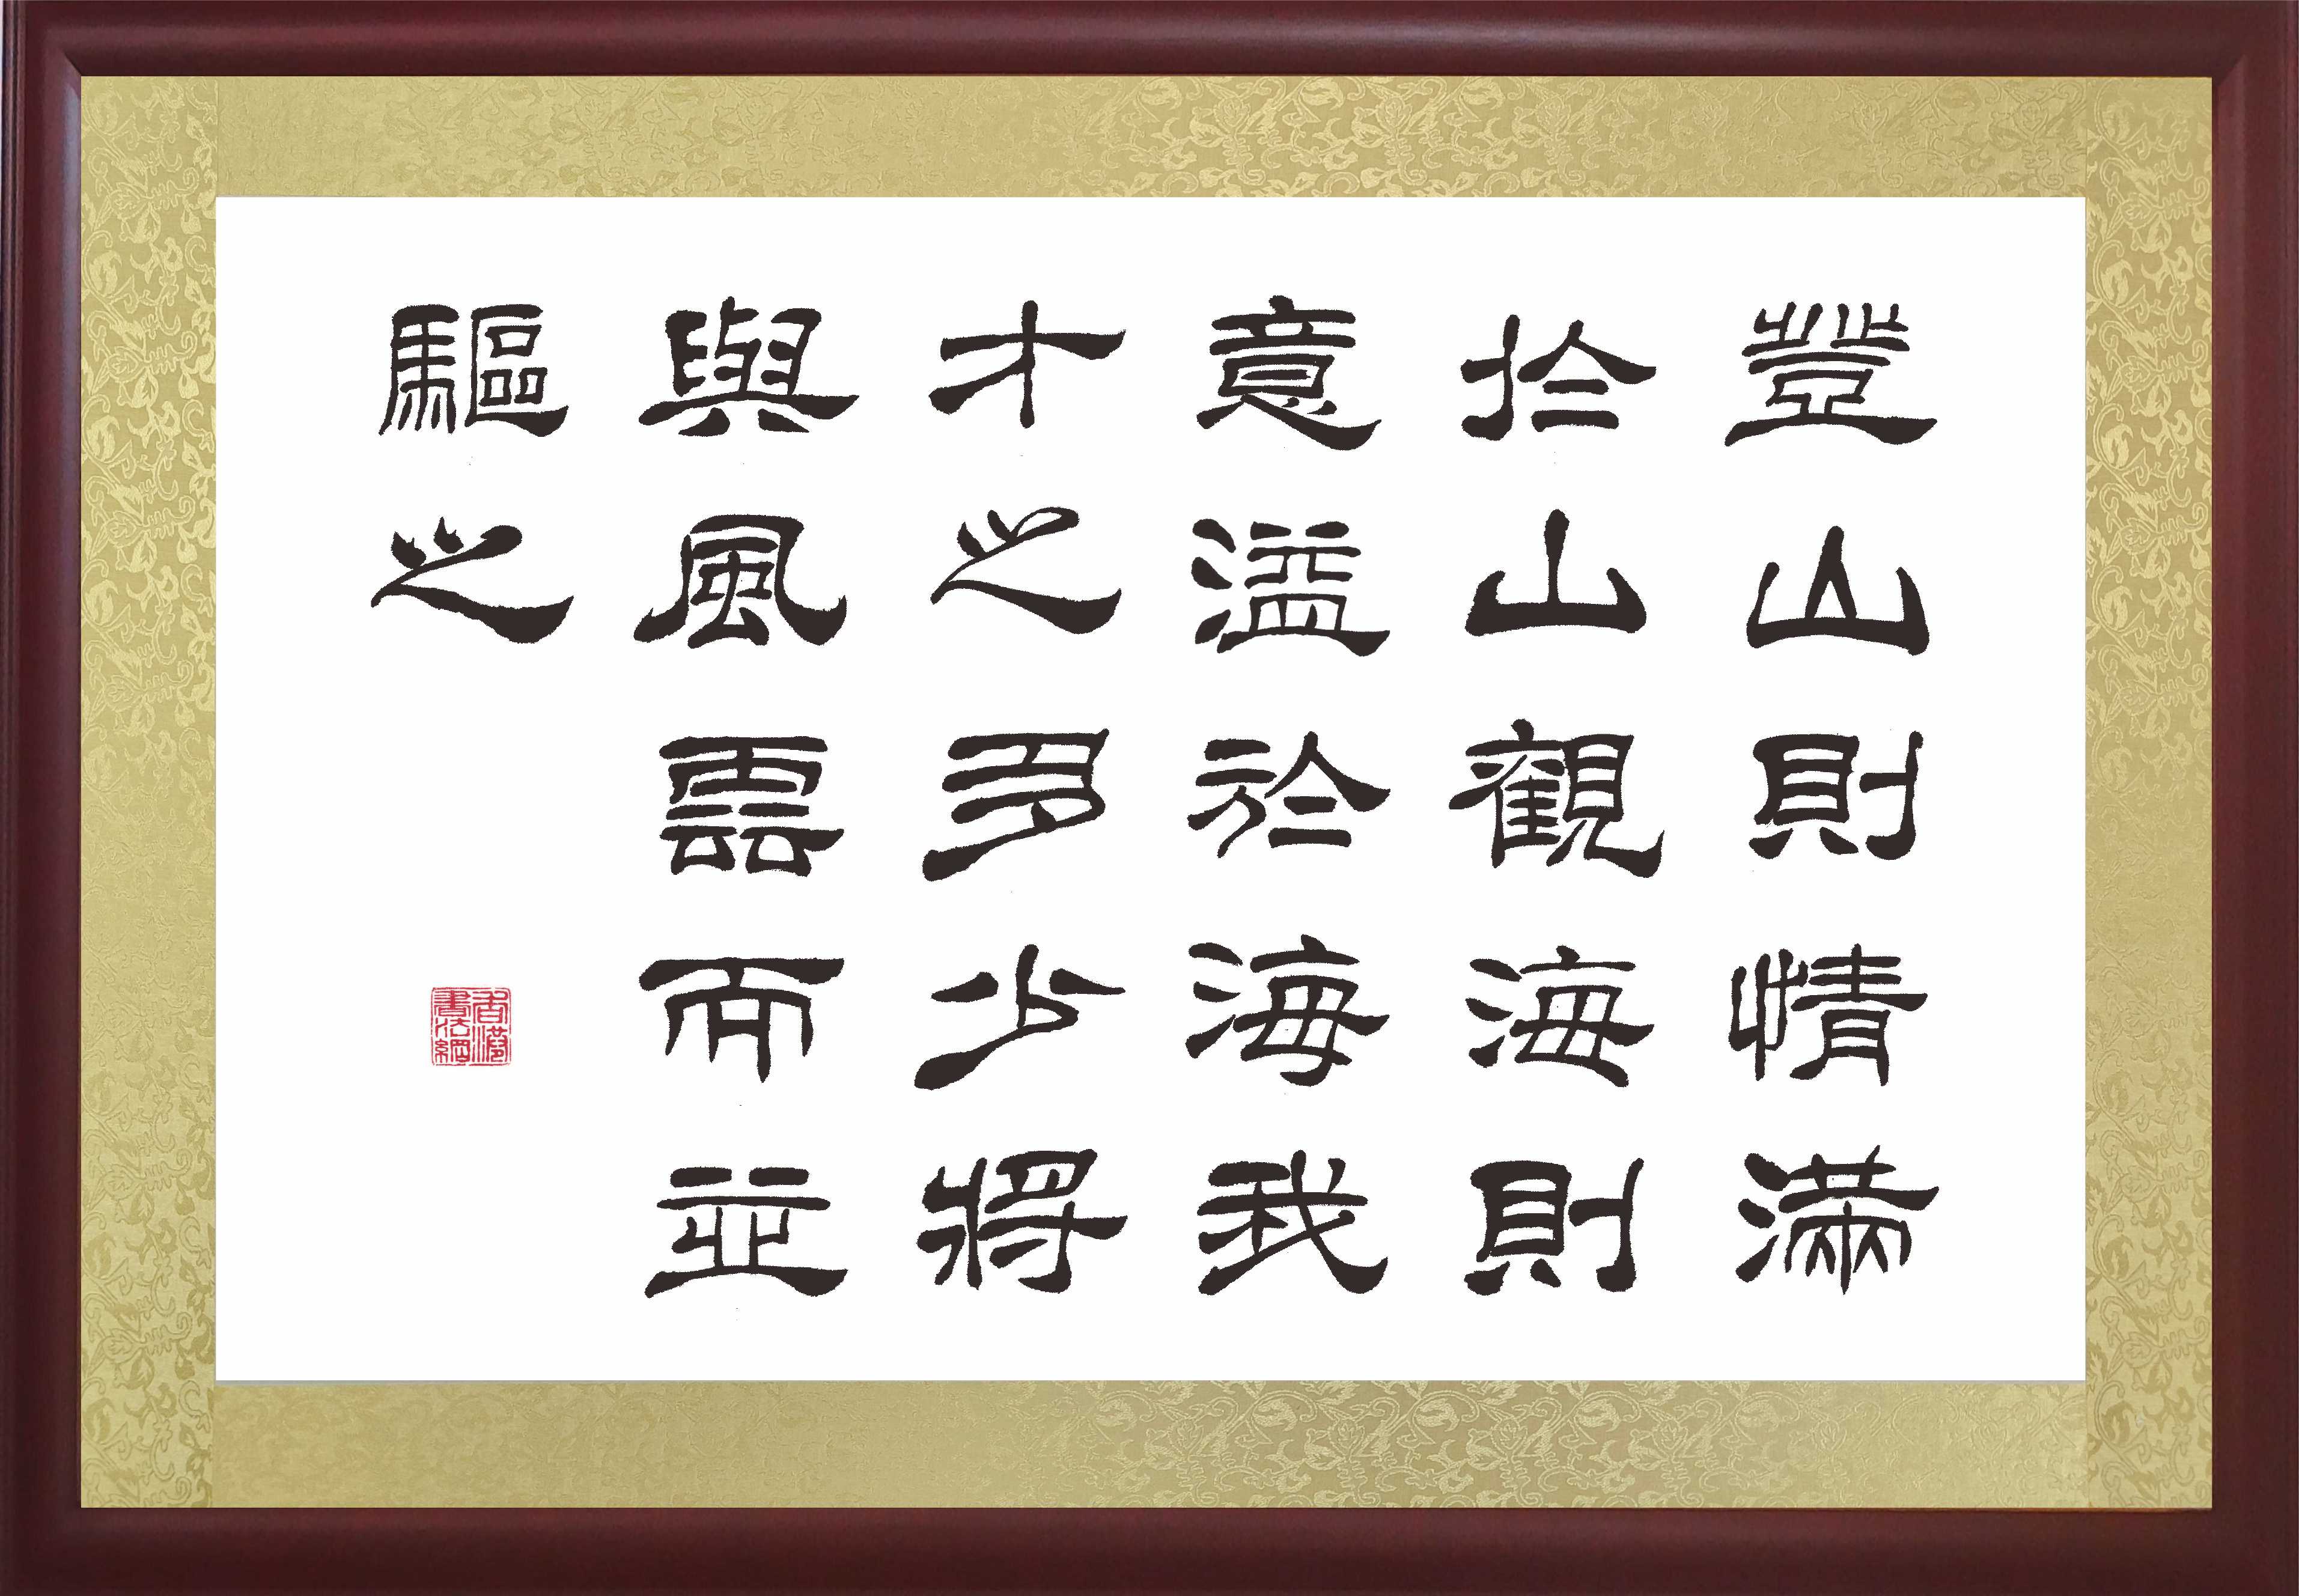 登山則情滿
於山觀海則
意溢於海我
才之多少將
與風雲而並
驅之
香港
書法網